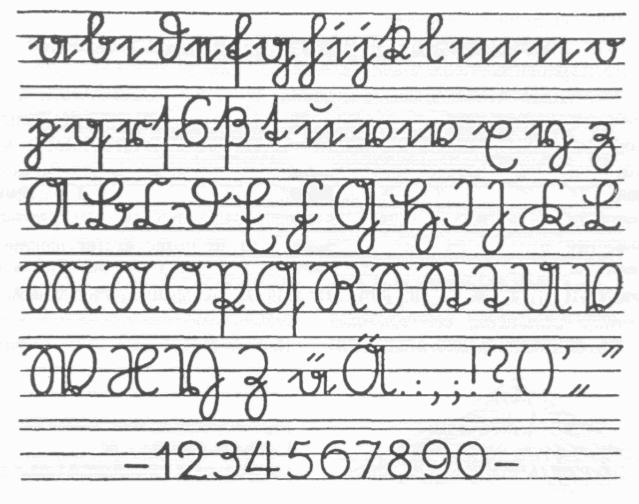 a b c d e f g h i j k l m n o
p q r ſ s ß t u v w x y z
A B C D E F G H I J K L
M N O P Q R S T U V
W X Y Z ä Ä . : , ; ! ? () ' „ ”
-1234567890-